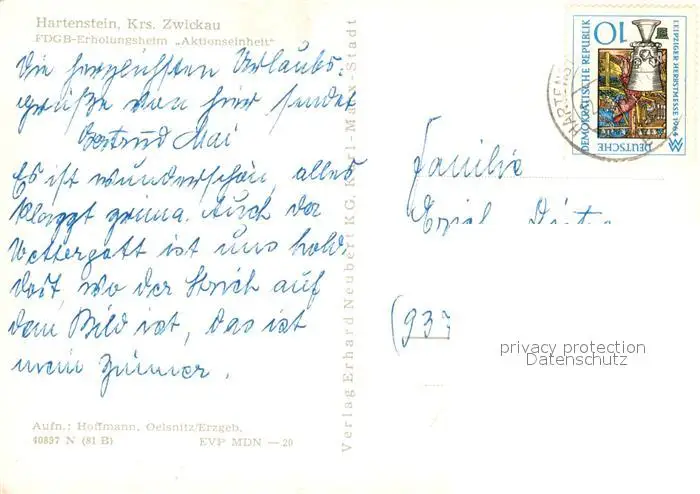 Hartenstein, Krs. Zwickau
FDGB-Erholungsheim „Aktionseinheit"
Die herzlichsten Urlaubs-
grüße von hier sendet
Gertrud Mai
Es ist wunderschön, alles
klappt prima. Auch der
Wettergott ist uns hold.
dort, wo der Strich auf
dem Bild ist, das ist
mein Zimmer.
Aufn.: Hoffmann, Oelsnitz/Erzgeb.
40897 N (81 B) EVP MDN —20
Verlag Erhard Neubert KG, Karl-Marx-Stadt
10
DEUTSCHE DEMOKRATISCHE REPUBLIK
LEIPZIGER HERBSTMESSE 1964
HARTENST
Familie
Erich
(937
privacy protection
Datenschutz